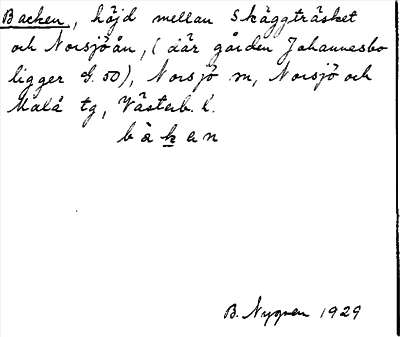 Backen, höjd mellan Skäggträsket
och Norsjöån, (där gården Johannesbo
ligger S. 50), Norsjö sn, Norsjö och
Malå tg, Västerb. l.
bàken
B. Nygren 1929